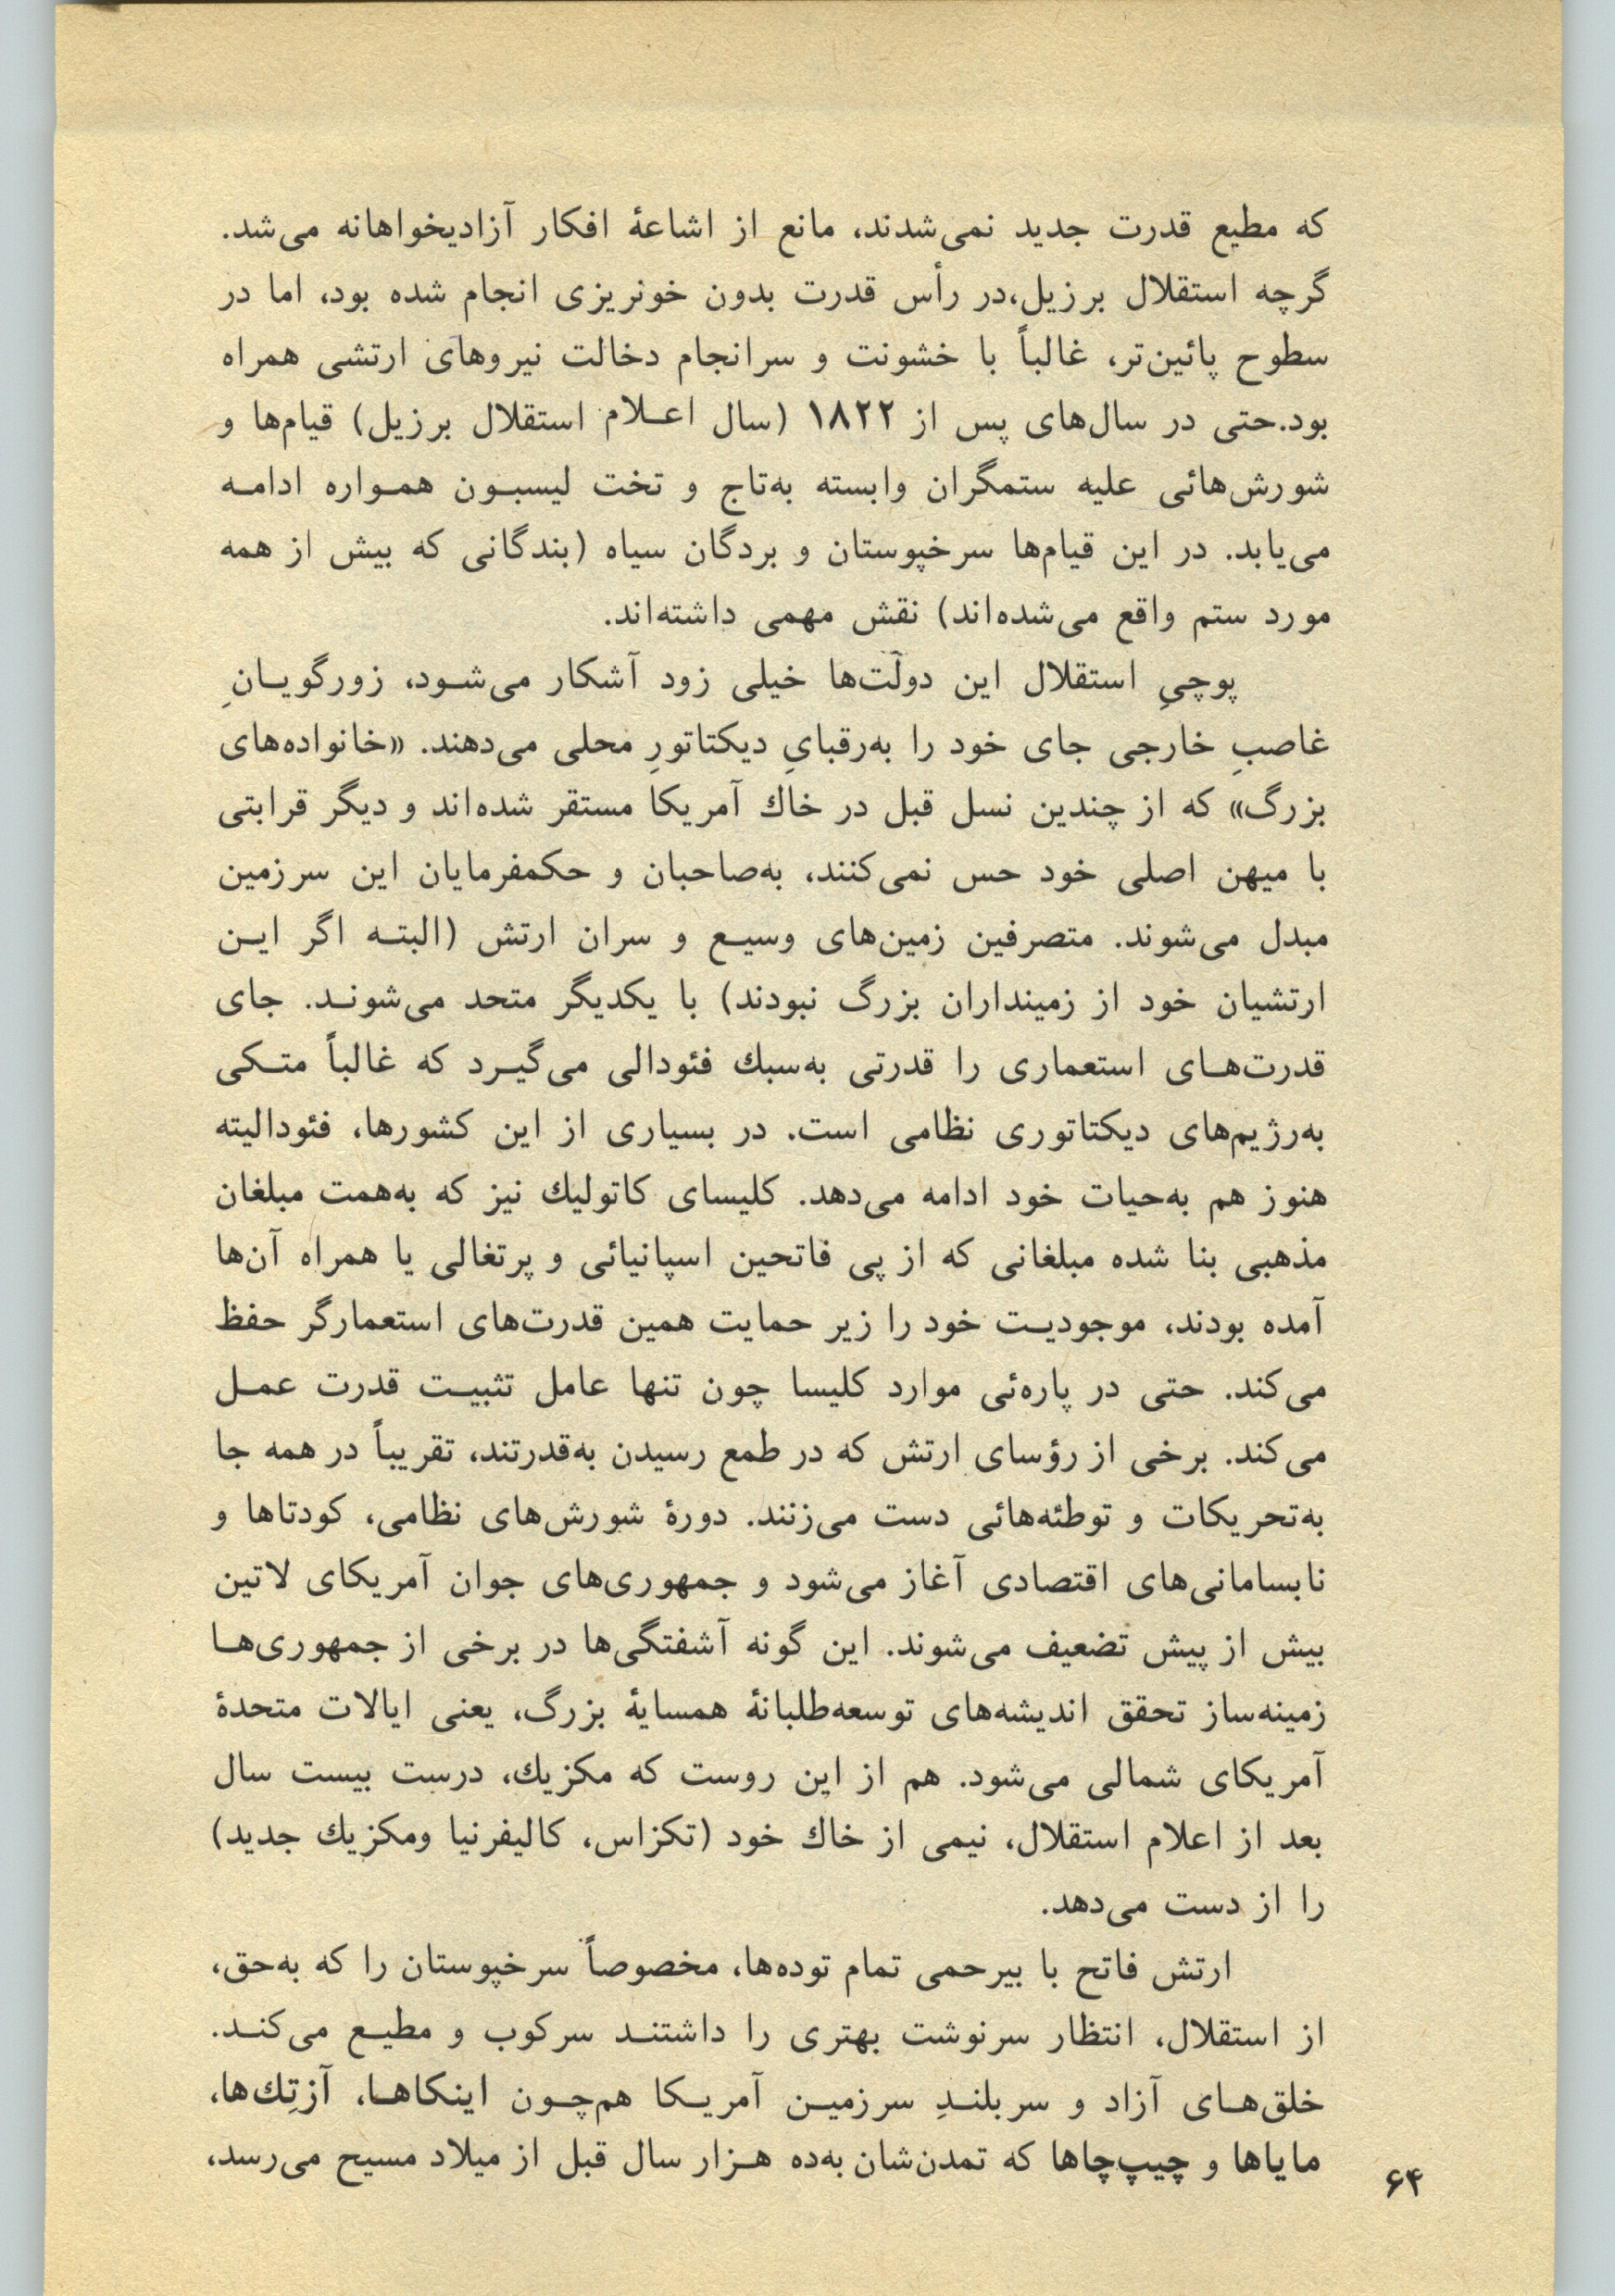 که مطیع قدرت جدید نمی‌شدند، مانع از اشاعهٔ افکار آزادیخواهانه می‌شد.
گرچه استقلال برزیل،در رأس قدرت بدون خونریزی انجام شده بود، اما در
سطوح پائین‌تر، غالباً با خشونت و سرانجام دخالت نیروهای ارتشی همراه
بود.حتی در سال‌های پس از ۱۸۲۲ (سال اعـلام استقلال برزیل) قیام‌ها و
شورش‌هائی علیه ستمگران وابسته به‌تاج و تخت لیسبـون همـواره ادامـه
می‌یابد. در این قیام‌ها سرخپوستان و بردگان سیاه (بندگانی که بیش از همه
مورد ستم واقع می‌شده‌اند) نقش مهمی داشته‌اند.
پوچیِ استقلال این دولّت‌ها خیلی زود آشکار می‌شـود، زورگویـانِ
غاصبِ خارجی جای خود را به‌رقبایِ دیکتاتورِ محلی می‌دهند. «خانواده‌های
بزرگ» که از چندین نسل قبل در خاك آمریکا مستقر شده‌اند و دیگر قرابتی
با میهن اصلی خود حس نمی‌کنند، به‌صاحبان و حکمفرمایان این سرزمین
مبدل می‌شوند. متصرفین زمین‌های وسیـع و سران ارتش (البتـه اگر ایـن
ارتشیان خود از زمینداران بزرگ نبودند) با یکدیگر متحد می‌شونـد. جای
قدرت‌هـای استعماری را قدرتی به‌سبك فئودالی می‌گیـرد که غالباً متـکی
به‌رژیم‌های دیکتاتوری نظامی است. در بسیاری از این کشورها، فئودالیته
هنوز هم به‌حیات خود ادامه می‌دهد. کلیسای کاتولیك نیز که به‌همت مبلغان
مذهبی بنا شده مبلغانی که از پی فاتحین اسپانیائی و پرتغالی یا همراه آن‌ها
آمده بودند، موجودیـت خود را زیر حمایت همین قدرت‌های استعمارگر حفظ
می‌کند. حتی در پاره‌ئی موارد کلیسا چون تنها عامل تثبیـت قدرت عمـل
می‌کند. برخی از رؤسای ارتش که در طمع رسیدن به‌قدرتند، تقریباً در همه جا
به‌تحریکات و توطئه‌هائی دست می‌زنند. دورهٔ شورش‌های نظامی، کودتاها و
نابسامانی‌های اقتصادی آغاز می‌شود و جمهوری‌های جوان آمریکای لاتین
بیش از پیش تضعیف می‌شوند. این گونه آشفتگی‌ها در برخی از جمهوری‌هـا
زمینه‌ساز تحقق اندیشه‌های توسعه‌طلبانهٔ همسایهٔ بزرگ، یعنی ایالات متحدهٔ
آمریکای شمالی می‌شود. هم از این روست که مکزیك، درست بیست سال
بعد از اعلام استقلال، نیمی از خاك خود (تکزاس، کالیفرنیا ومکزیك جدید)
را از دست می‌دهد.
ارتش فاتح با بیرحمی تمام توده‌ها، مخصوصاً سرخپوستان را که به‌حق،
از استقلال، انتظار سرنوشت بهتری را داشتنـد سرکوب و مطیـع می‌کنـد.
خلق‌هـای آزاد و سربلنـدِ سرزمیـن آمریـکا هم‌چـون اینکاهـا، آزتِك‌ها،
مایاها و چیپ‌چاها که تمدن‌شان به‌ده هـزار سال قبل از میلاد مسیح می‌رسد،
۶۴